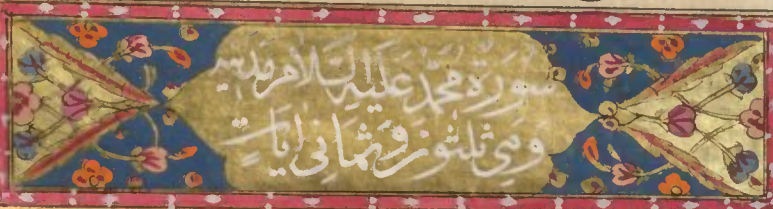 سورة محمد عليه السلام مدنية
وهي ثلثون وثماني ايات